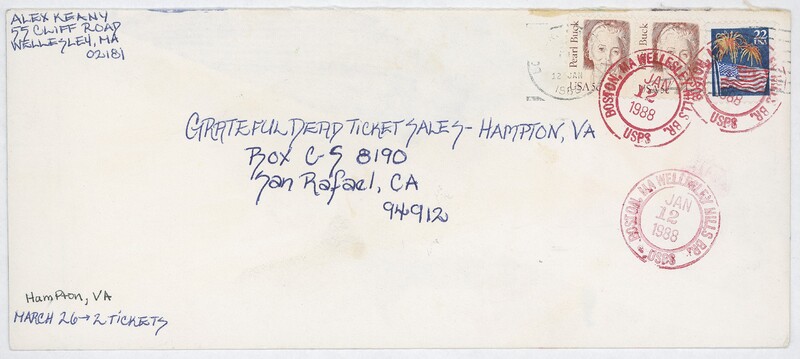 ALEX KEANY
55 CLIFF ROAD
WELLESLEY, MA
02181
Pearl Buck
USA 5c
Pearl Buck
USA
22
USA
12 JAN
BOSTON, MA WELLESLEY HILLS BR.
JAN
12
1988
USPS
GRATEFUL DEAD TICKET SALES - HAMPTON, VA
BOX C-S 8190
San Rafael, CA
94912
BOSTON, MA WELLESLEY HILLS BR.
JAN
12
1988
USPS
Hampton, VA
MARCH 26→2 TICKETS